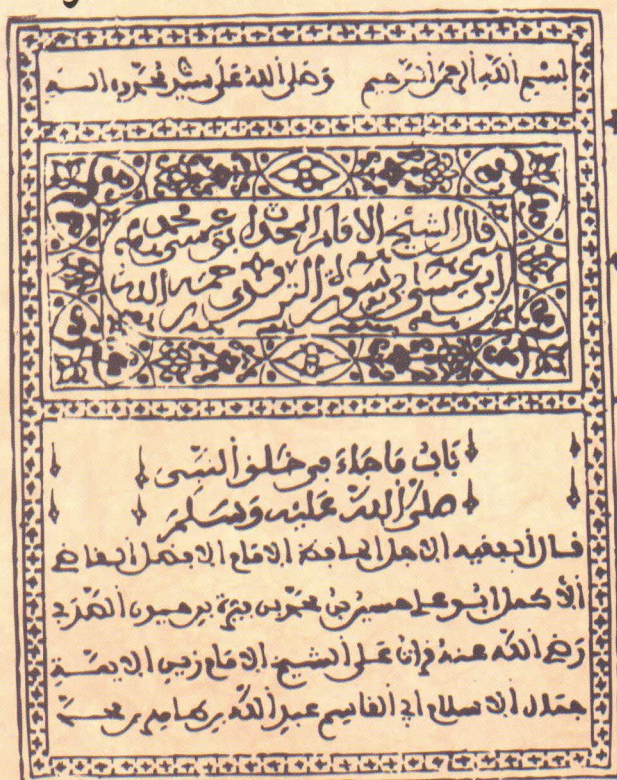 بسم الله الرحمن الرحيم وصلى الله على محمد
قال الشيخ الامام المحدث ابو عيسى محمد
ابن عيسى بن سورة الترمذي رحمه الله
باب ما جاء في خلق النبي
صلى الله عليه وسلم
قال الفقيه الاجل الحافظ الامام الافضل القاضي
الاكمل ابو علي حسين بن محمد بن
رضي الله عنه قرات على الشيخ الامام زين الايمة
جمال الاسلام ابي القاسم عبد الله بن طاهر بن محمد